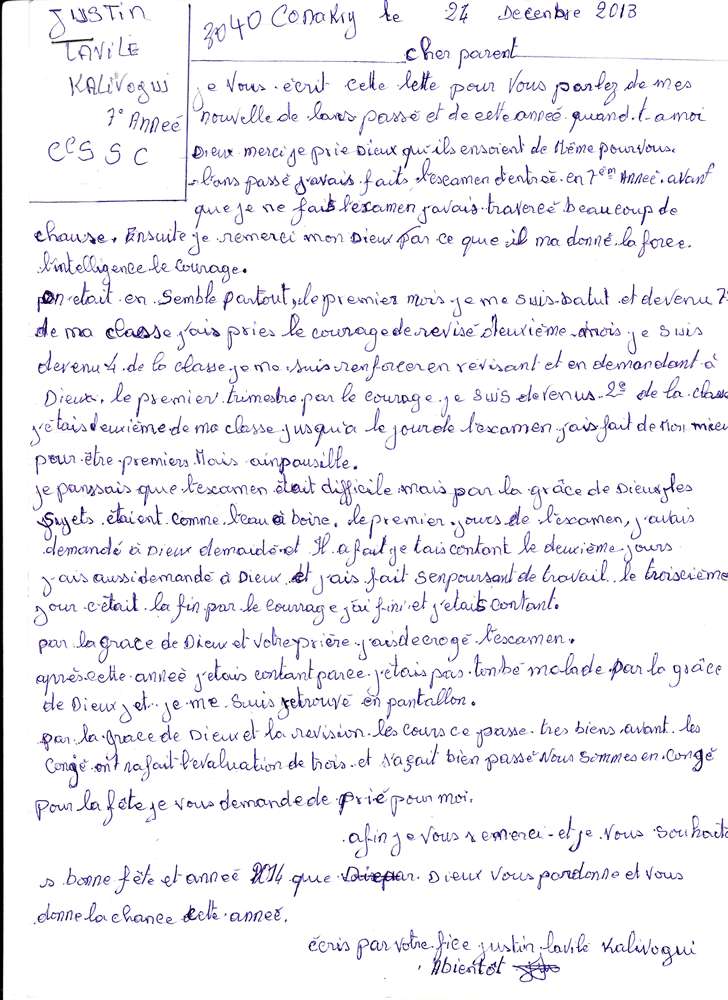 Justin
Lavile
Kalivogui
7e Anneé
CCSSC
3040 Conakry le 24 Decenbre 2013
cher parent
je vous écrit cette lette pour vous parlez de mes
nouvelle de lans passé et de cette anneé quand.t-a moi
Dieux merci je prie Dieux qu'ils ensoient de Même pour vous.
l'ans passé j'avais faits l'examen d'entreé en 7em Anneé. avant
que je ne fais l'examen j'avais traverseé beaucoup de
chause. Ensuite je remerci mon Dieux par ce que il ma donné la force.
l'intelligence le courage.
on etait en semble partout, le premier mois je me suis batut et devenu 7e
de ma classe j'ais pries le courage de revisé deuxième mois je suis
devenu 4 de la classe je me suis renforcer en revisant et en demandant à
Dieux. le premier trimestre par le courage je suis devenus 2e de la classe
j'etais deuxième de ma classe jusqu'a le jour de l'examen j'ais fait de Mon mieu
pour être premiers Mais ainpausille.
je panssais que l'examen était difficile mais par la grâce de Dieux les
Sujets étaient comme l'eau à boire. le premier jours de l'examen, j'avais
demandé à Dieux demandé et Il a fait je tais contant le deuxième jours
j'ais aussi demandé à Dieux et j'ais fait senpoursant de travail le troiscième
jour c'était la fin par le courrage j'ai fini et j'etais contant.
par la grace de Dieux et votre prière j'ais decrogé l'examen.
après cette anneé j'etais contant parce j'etais pas tonbé malade par la grâce
de Dieux et je me suis retrouvé en pantallon.
par la grace de Dieux et la revision les cours ce passe tres biens avant les
Congé ont a fait l'evaluation de trois et s'açait bien passé Nous sommes en congé
pour la fête je vous demande de prié pour moi.
afin je vous remerci et je vous souhaite
s bonne fête et anneé 2014 que Dieux vous pardonne et vous
donne la chance cette anneé.
écris par votre fice justin lavile Kalivogui
Abientot